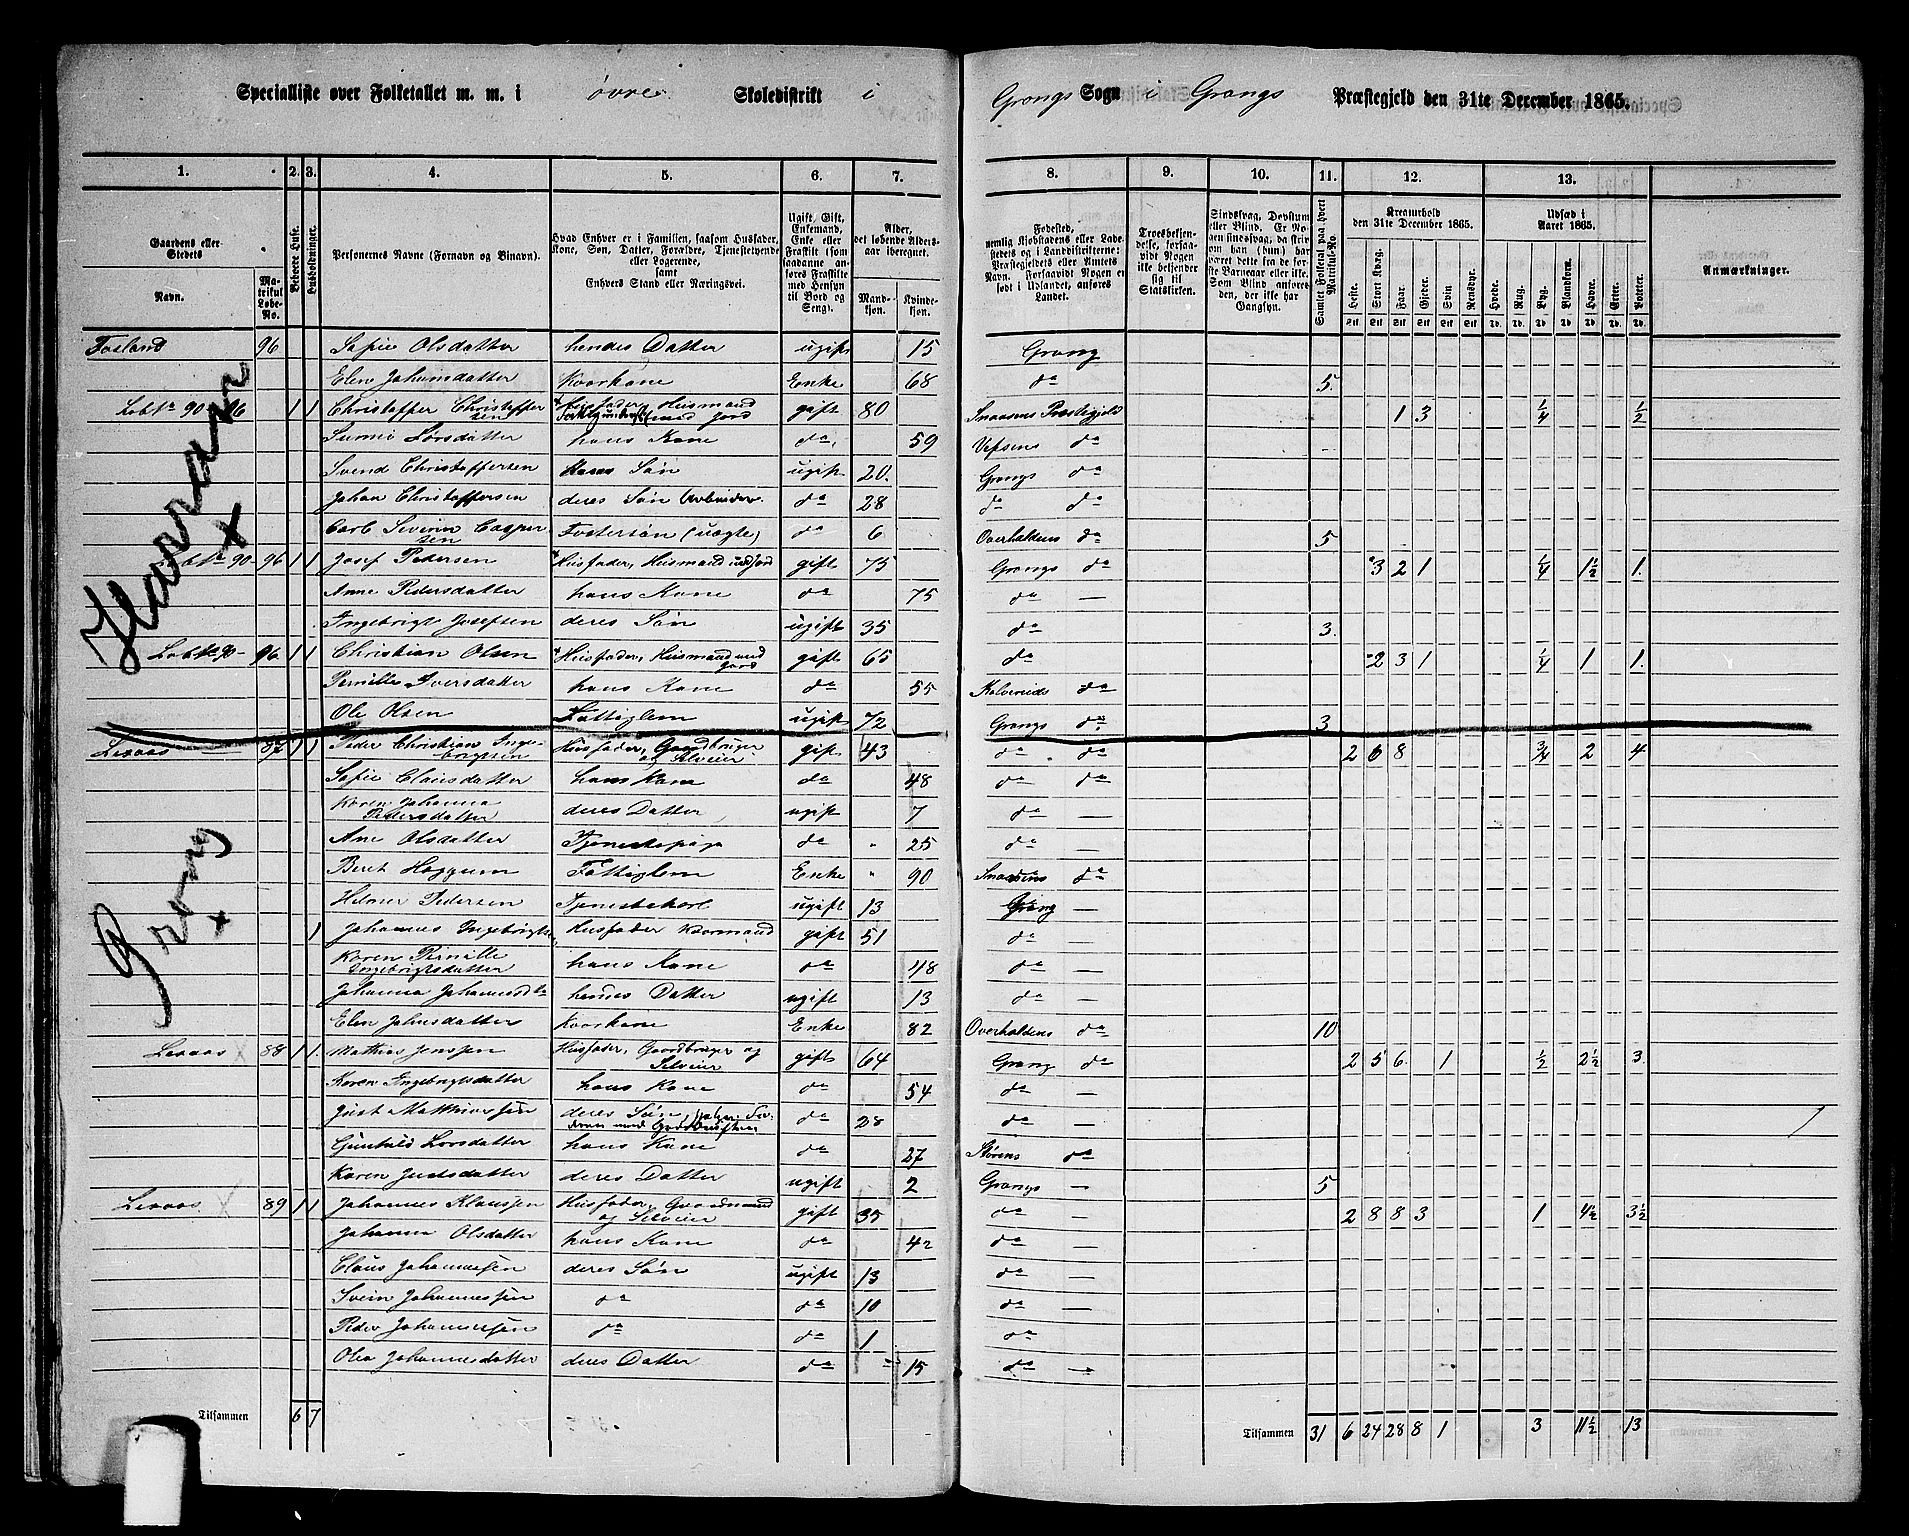 Specialliste over Folketallet m. m. i øvre Skoledistrikt i Grongs Sogn i Grongs Præstegjeld den 31te December 1865.
1. 2. 3. 4. 5. 6. 7. 8. 9. 10. 11. 12. 13.
Gaardens eller Stedets Navn. Matrikul Løbe-No. Beboede Huse. Husholdninger. Personernes Navne (Fornavn og Binavn). Hvad Enhver er i Familien, saasom Husfader, Kone, Søn, Datter, Forældre, Tjenestetyende eller Logerende, samt Enhvers Stand eller Næringsvei. Ugift, Gift, Enkemand, Enke eller Fraskilt (saadanne anføres Fraskilte med Hensyn til Bord og Seng). Alder, det løbende Aldersaar iberegnet. Mandkjøn. Kvindekjøn. Fødested, nemlig Kjøbstadens eller Ladestedets og i Landdistrikterne: Præstegjeldets eller Amtets Navn. Forsaavidt Nogen er født i Udlandet, anføres Landet. Troesbekjendelse, forsaavidt Nogen ikke bekjender sig til Statskirken. Sindssvag, Døvstum eller Blind. Samlet Folketal paa hvert Matrikul-No. Kreaturhold den 31te December 1865. Heste. Stort Kvæg. Faar. Gjeder. Svin. Rensdyr. Udsæd i Aaret 1865. Hvede. Rug. Byg. Blandkorn. Havre. Erter. Poteter. Anmærkninger.
Fosland 96 Sofie Olsdatter hendes Datter ugift 15 Grong
Elen Johansdatter Kaarkone Enke 68 do 5.
Løbno 90-96 1 1 Christoffer Christoffersen Husfader, Husmand med Jord gift 80 Snaasens Præstegjeld 1 3 1/4 1/2
Larsdatter hans Kone do 59 Vefsens do
Svend Christoffersen Søn ugift 20. Grongs do
Johan Christoffersen deres Søn Arbeider do 28 do do
Carl Severin Caspersen Fostersøn (uægte) do 6 Overhaldens do 5
Løbno 90- 96 1 1 Josef Pedersen Husfader, Husmand med Jord gift 75 Grongs do 3 2 1 1/4 1 1/2 1.
Anne Pedersdatter hans Kone do 75 do —
Ingebrigt Josefsen deres Søn ugift 35 do 3.
Løbno 90- 96 1 1 Christian Olsen Husfader, Husmand med Jord gift 65 do 2 3 1 1/4 1 1.
Pernille Iversdatter hans Kone do 55 Kolvereids do
Ole Olsen Fattiglem ugift 72 Grongs do 3
Harran ×
Lexaas 87 1 1 Peder Christian Ingebrigtsen Husfader, Gaardbruger og Selveier gift 43 do do 2 6 8 3/4 2 4
Sofie Clausdatter hans Kone do 48 do do
Karen Johanna Pedersdatter deres Datter ugift 7 do —
Ane Olsdatter Tjenestepige do 25 do —
Beret Haggum Fattiglem Enke 90 Snaasens do
Hilmer Pedersen Tjenestekarl ugift 13 Grong —
1 Johannes Ingebrigtsen Husfader Kaarmand gift 51 do —
Karen Pernille Ingebrigtsdatter hans Kone do 48 do —
Johanna Johannesdtr hendes Datter ugift 13 do —
Elen Johnsdatter Kaarkone Enke 82 Overhaldens do 10
Grong ×
Lexaas 88 1 1. Mathias Jenssen Husfader, Gaardbruger og Selveier gift 64 Grong do 2 5 6 1 1/2 2 1/2 3.
Karen Ingebrigtsdatter hans Kone do 54 do —
Just Mathiassen deres Søn, hjelper Faderen med Gaardsdriften do 28 do —
Gunhild Larsdatter hans Kone do 27 Størens do
Karen Justsdatter deres Datter ugift 2 Grongs — 5
Lexaas 89 1 1 Johannes Klaussen Husfader, Gaardmand og Selveier gift 35 do — 2 8 8 3 1 4 1/2 3 1/2
Johanna Olsdatter hans Kone do 42 do —
Claus Johannessen deres Søn ugift 13 do —
Svein Johannessen do do 10 do —
Peder Johannessen do do 1 do —
Olea Johannesdatter deres Datter do 15 do —
Tilsammen 6 7 Tilsammen 31 6 24 28 8 1 3 11 1/2 13